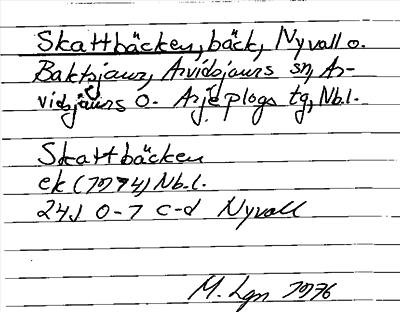 Skattbäcken, bäck, Nyvall o.
Baktsjaur, Arvidsjaurs sn, Ar-
vidsjaurs o. Arjeplogs tg, Nb.l.
Skattbäcken
ek (1974) Nb.l.
24J 0-7 c-d Nyvall
M. Lgn 1976